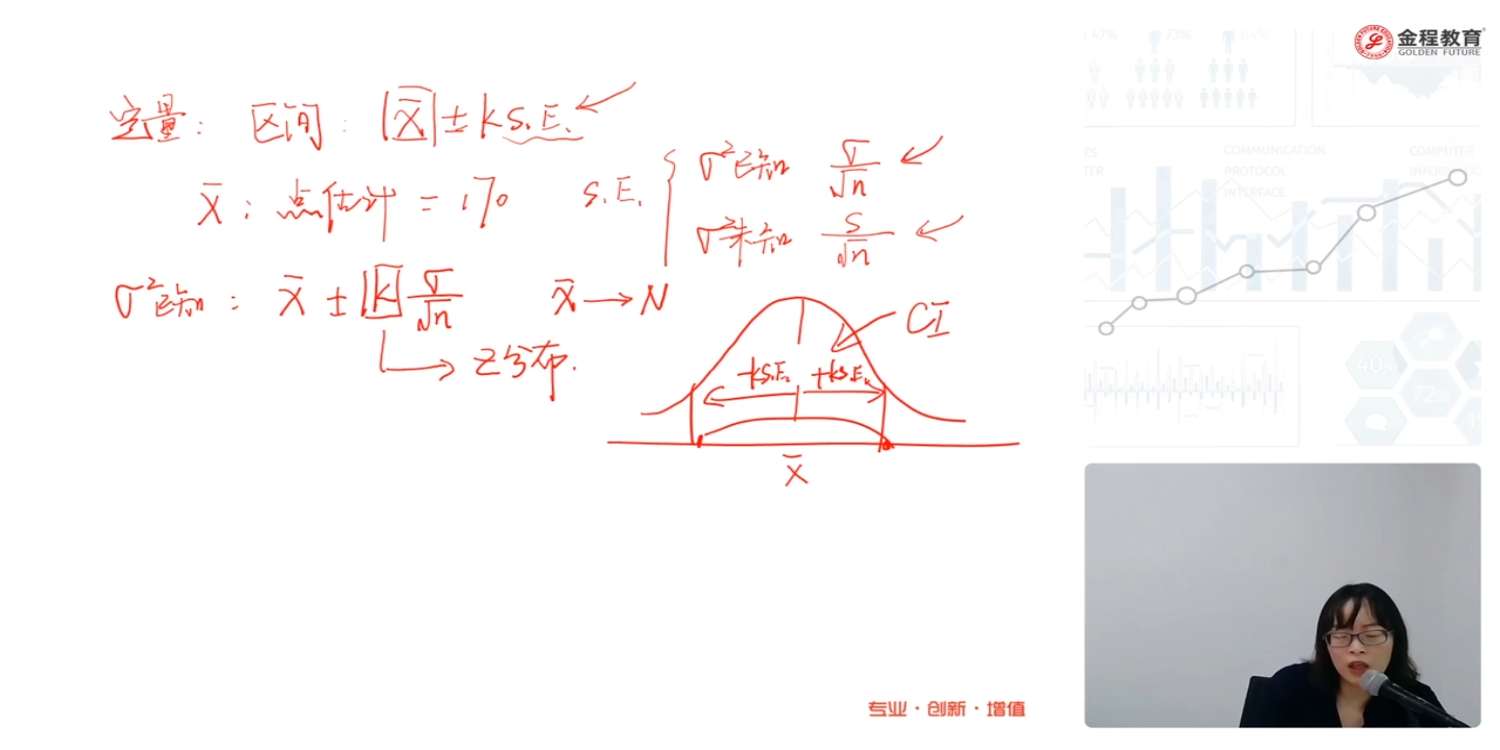 金程教育
GOLDEN FUTURE
定量: 区间: |X̄| ± k S.E.
X̄: 点估计 = 170
S.E.
σ²已知 σ/√n
σ²未知 s/√n
σ²已知: X̄ ± k σ/√n
X̄ → N
→ Z分布.
CI
-kS.E. +kS.E.
X̄
47%
23%
COMMUNICATION
PROTOCOL
INTERFACE
COMPUTER
40%
专业·创新·增值